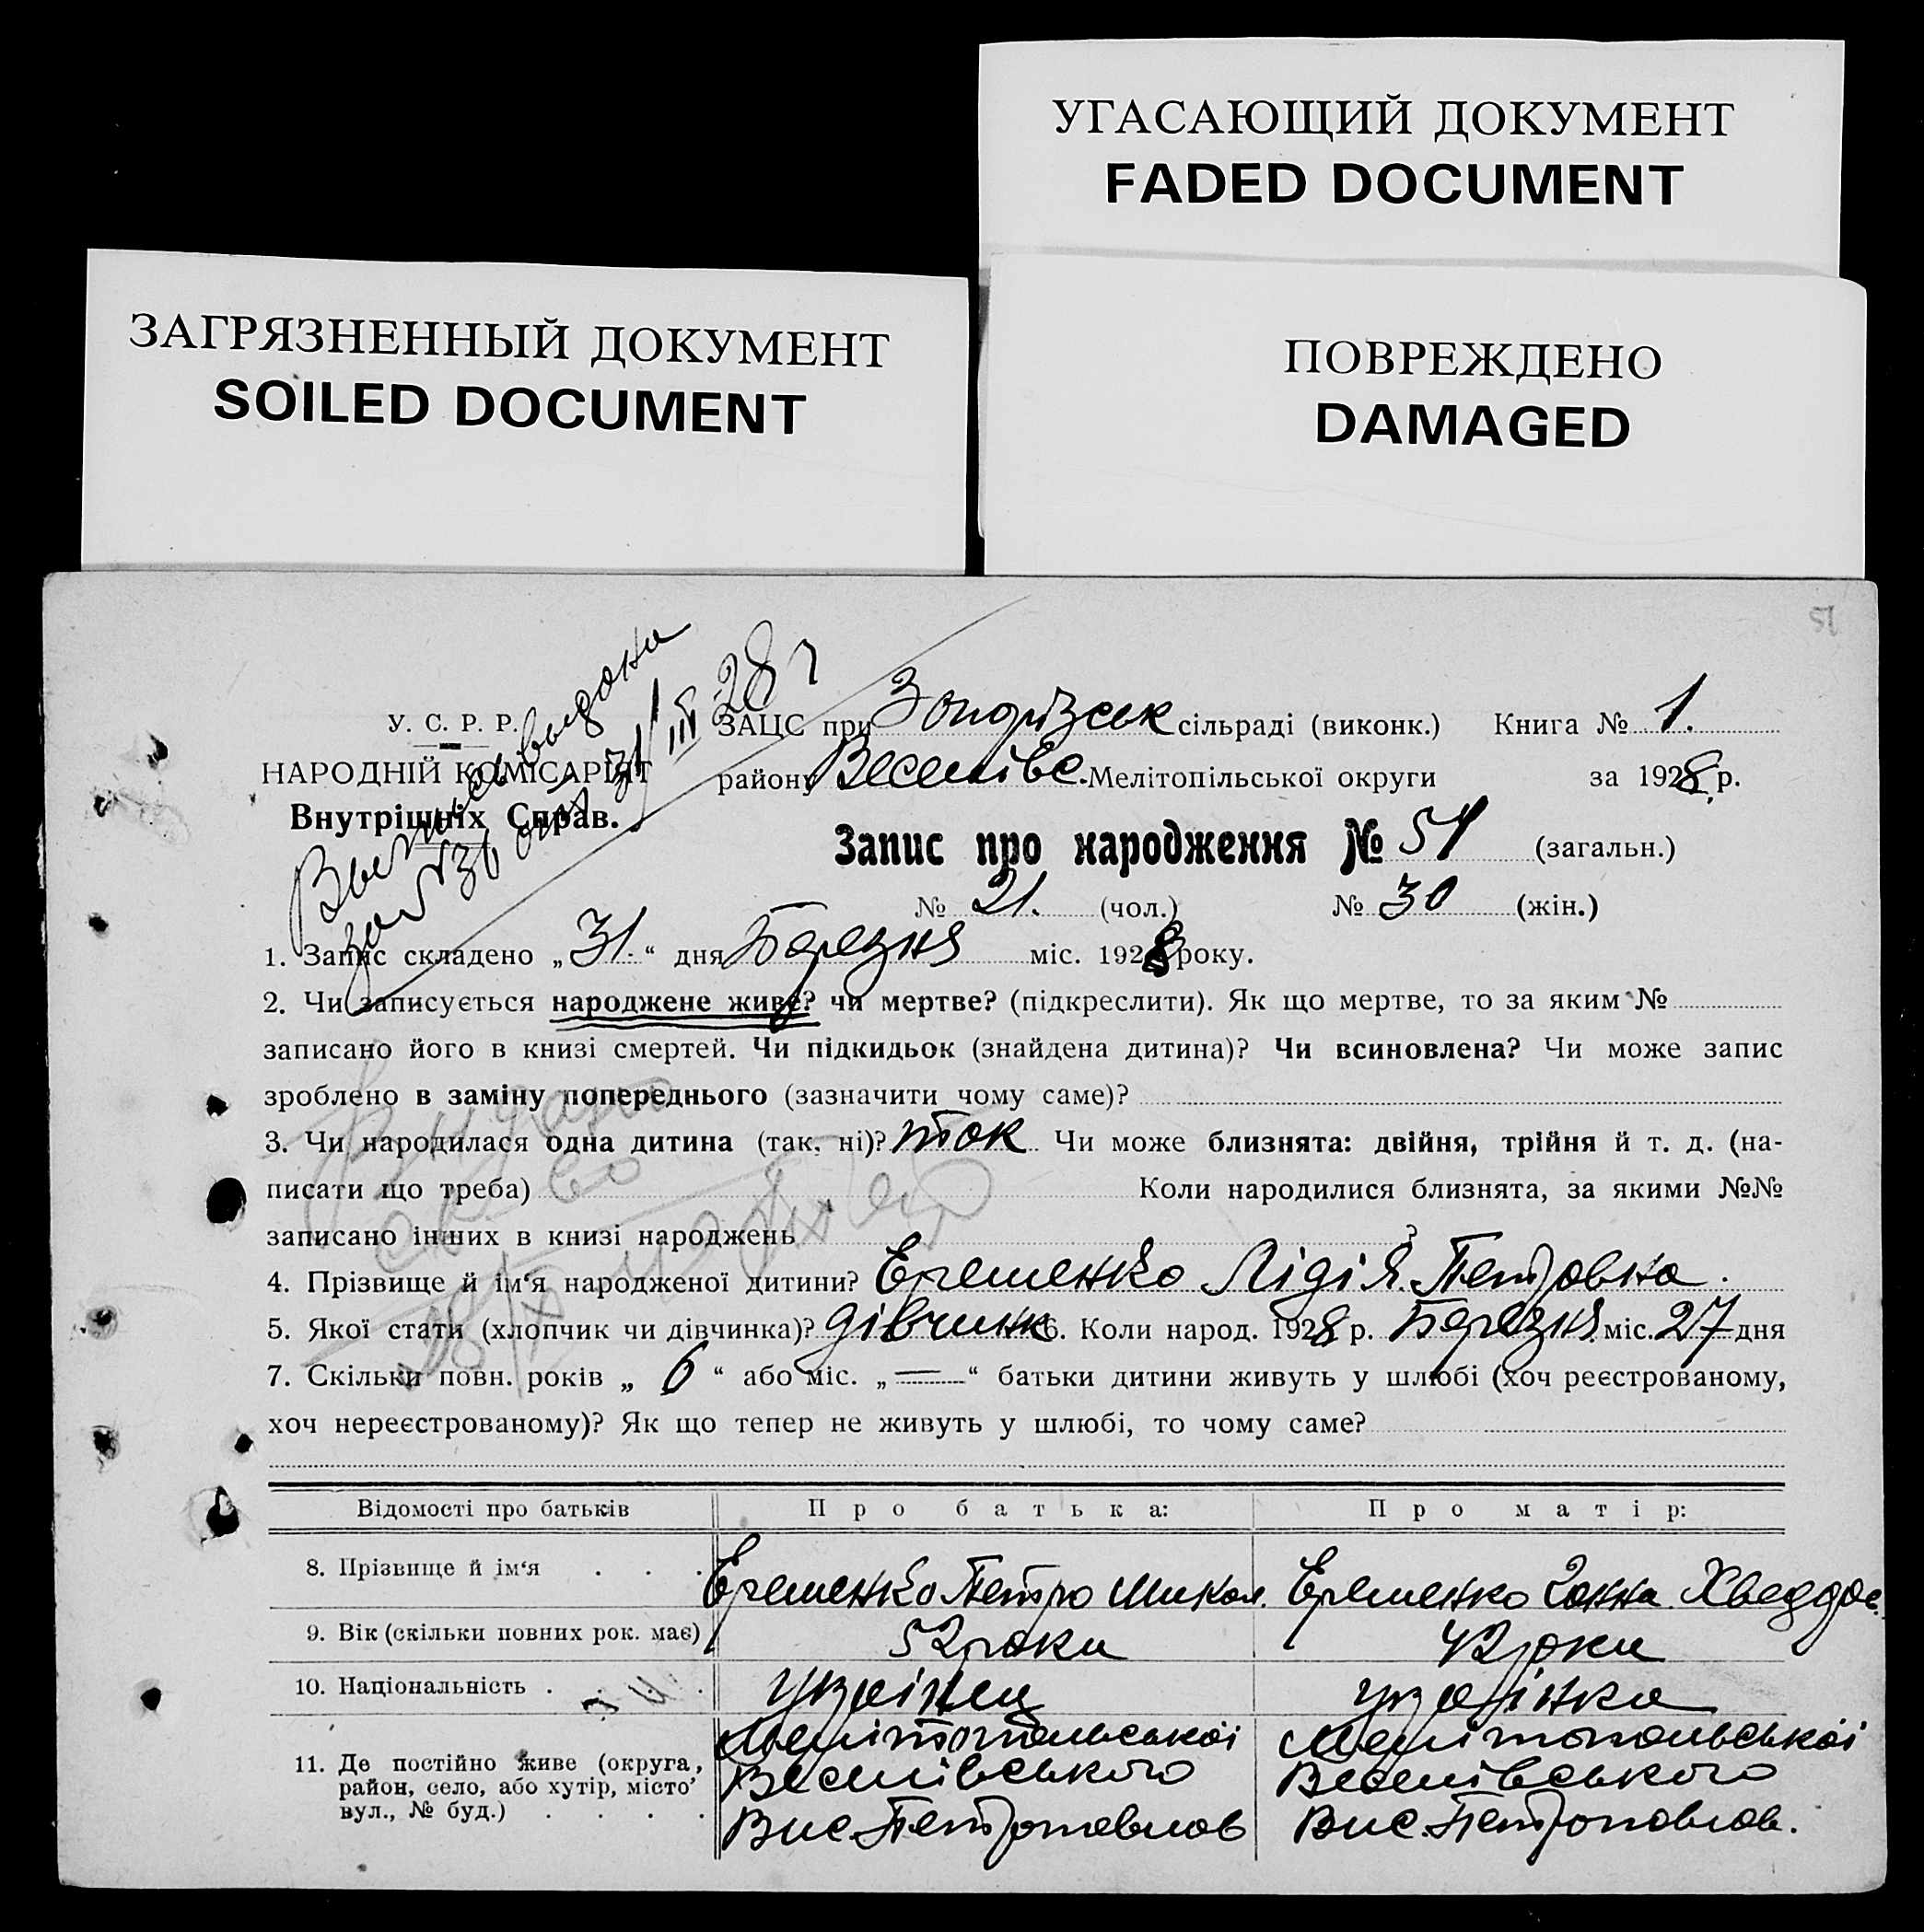 УГАСАЮЩИЙ ДОКУМЕНТ
FADED DOCUMENT
ЗАГРЯЗНЕННЫЙ ДОКУМЕНТ
SOILED DOCUMENT
ПОВРЕЖДЕНО
DAMAGED
51
Выпись выдана
за № 36 от 31/III 28 г
У. С. Р. Р.
НАРОДНІЙ КОМІСАРІЯТ
Внутрішніх Справ.
ЗАЦС при сільраді (виконк.) Книга № 1.
району Веселівс. Мелітопільської округи за 1928 р.
Запис про народження № 51 (загальн.)
№ 21. (чол.) № 30 (жін.)
1. Запис складено „31.“ дня Березня міс. 1928 року.
2. Чи записується народжене живе? чи мертве? (підкреслити). Як що мертве, то за яким №
записано його в книзі смертей. Чи підкидьок (знайдена дитина)? Чи всиновлена? Чи може запис
зроблено в заміну попереднього (зазначити чому саме)?
3. Чи народилася одна дитина (так, ні)? так Чи може близнята: двійня, трійня й т. д. (на-
писати що треба) Коли народилися близнята, за якими №№
записано інших в книзі народжень ?
4. Прізвище й ім‘я народженої дитини? Еременко Лідія Петровна.
5. Якої стати (хлопчик чи дівчинка)? дівчинк 6. Коли народ. 1928 р. Березня міс. 27 дня
7. Скільки повн. років „ 6 “ або міс. „ — “ батьки дитини живуть у шлюбі (хоч реєстрованому,
хоч нереєстрованому)? Як що тепер не живуть у шлюбі, то чому саме?
Відомості про батьків Про батька: Про матір:
8. Прізвище й ім‘я . . . Еременко Петро Микол. Еременко Ганна Хведдос.
9. Вік (скільки повних рок. має) 52 роки 42 роки
10. Національність . . . . українец українка
11. Де постійно живе (округа, район, село, або хутір, місто’ вул., № буд.) . . . .
Мелітопольськоі Мелітопольськоі
Веселівського Веселівського
Вис. Петропавлов Вис. Петропавлов.